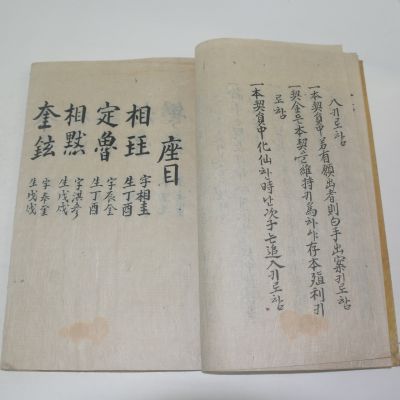 入키로함
一本契員中若有願出者則白手出案키로함
一契金은本契을維持키爲하야存本殖利키
로함
一本契員中化仙한時난次子로追入키로함
座目
相珏 字相圭 生丁酉
定魯 字辰金 生丁酉
相默 字洪彦 生戊戌
奎鉉 字泰金 生戊戌